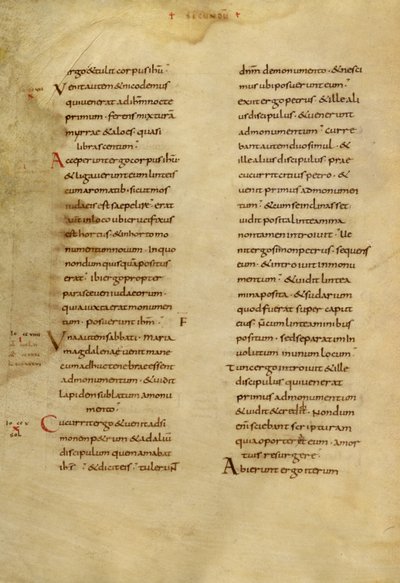 † SECUNDŪ †
ergo & tulit corpus ihu
Venit autem & nicodemus
qui venerat ad ihm nocte
primum · ferens mixturā
myrrae & aloes · quasi
libras centum ·
Acceperunt ergo corpus ihu
& liguaverunt eum linteis
cum aromatib; sicut mos
iudaeis est saepelire · erat
aut in loco ubi crucifixus
est hortus · & in horto mo
numentum novum · in quo
nondum quisqua positus
erat · ibi ergo propter
parasceven iudaeorum ·
quia iuxta erat monumen
tum · posuerunt ihm ·
Una autem sabbati · maria
magdalenae venit mane
cum adhuc tenebrae essent
ad monumentum · & vidit
lapidem sublatum a monu
mento ·
Cucurrit ergo & venit ad si
monem p&rum & ad aliū
discipulum quem amabat
ihs · & dicit eis · tulerunt
dnm de monumento · & nesci
mus ubi posuerunt eum ·
exiit ergo petrus · & ille ali
us discipulus · & venerunt
ad monumentum · curre
bant autem duo simul · &
ille alius discipulus prae
cucurrit citius petro · &
venit primus ad monumen
tum · & cum se inclinasset
vidit posita linteamina
non tamen introivit · Ve
nit ergo simon petrus · sequens
eum · & introivit in monu
mentum · & vidit lintea
mina posita · & sudarium
quod fuerat super caput
eius · Non cum linteaminibus
positum · sed separatim in
volutum in unum locum ·
Tunc ergo introivit & ille
discipulus qui venerat
primus ad monumentum
& vidit & credit · Nondum
enī sciebant scripturam
quia oportet eum · a mor
tuis resurgere ·
Abierunt ergo iterum